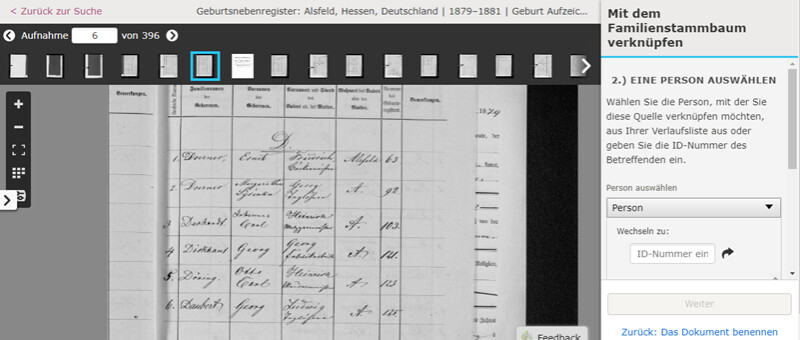 < Zurück zur Suche
Geburtsnebenregister: Alsfeld, Hessen, Deutschland | 1879–1881 | Geburt Aufzeic...
Aufnahme 6 von 396
Bemerkungen.
Familiennamen der Geborenen.
Vornamen der Geborenen.
Vornamen und Stand des Vaters od. der Mutter.
Wohnort des Vaters oder der Mutter.
Bemerkungen.
1879
D.
1. Dorner, Ernst Friedrich Alsfeld 63
2. Dorner Margaretha Georg A. 92
3 Johannes Carl Heinrich A. 103.
4 Georg Georg A. 121.
5. Döring, Otto Carl Heinrich A 123
6. Daubert Georg Ludwig A
Mit dem
Familienstammbaum
verknüpfen
2.) EINE PERSON AUSWÄHLEN
Wählen Sie die Person, mit der Sie
diese Quelle verknüpfen möchten,
aus Ihrer Verlaufsliste aus oder
geben Sie die ID-Nummer des
Betreffenden ein.
Person auswählen
Person
Wechseln zu:
ID-Nummer ein
Weiter
Zurück: Das Dokument benennen
Feedback